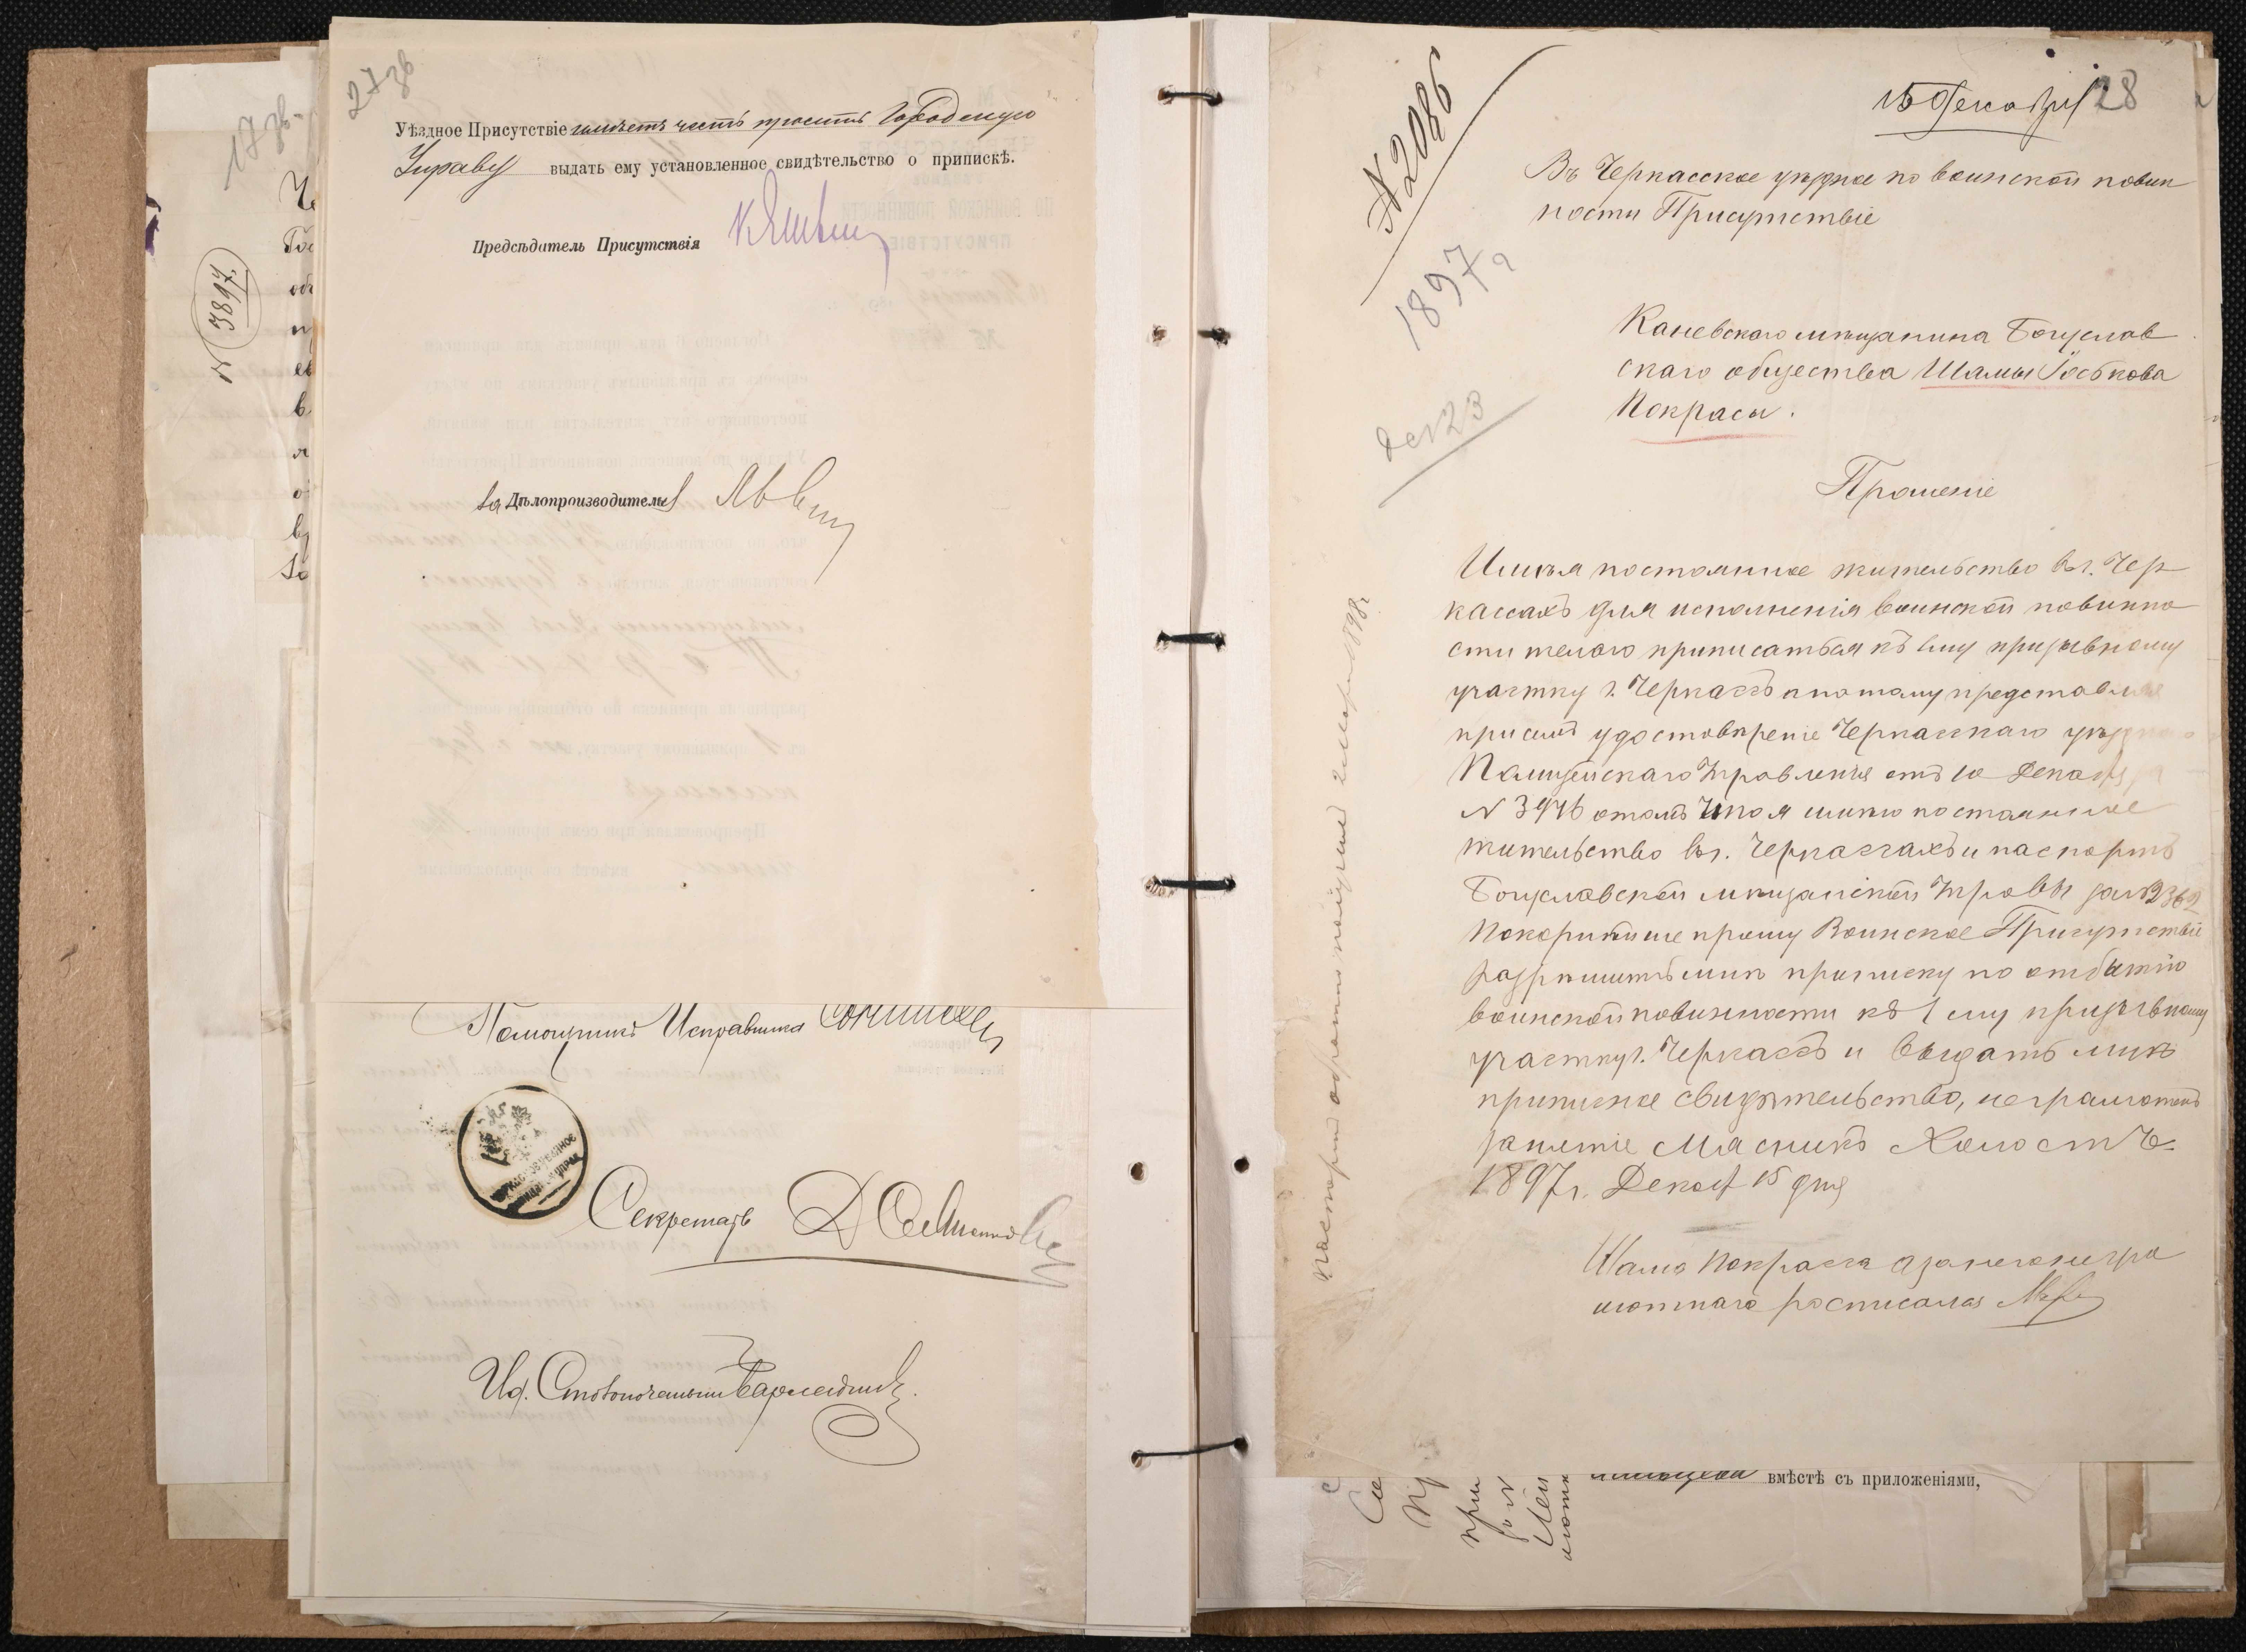 27 зв
Уѣздное Присутствіе имѣетъ честь просить Городскую
Управу выдать ему установленное свидѣтельство о припискѣ.
Предсѣдатель Присутствія
За Дѣлопроизводителя
17 зв.
3897
Помощникъ Исправника
Секретарь
Ид. Столоначальника
28
15 Декабря
N 2086
1897 г
Въ Черкасское уѣздное по воинской повин
ности Присутствіе
Каневскаго мѣщанина Богуслав
скаго общества Шамы Госькова
Покрасы.
Прошеніе
Имѣя постоянное жительство въ г. Чер
кассахъ для исполненія воинской повинно
сти желаю приписаться къ 1му призывному
участку г. Черкассъ а потому представляя
при семъ удостовѣреніе Черкасскаго уѣзднаго
Полицейскаго Управленія отъ 10 Декабря
N 3946 о томъ что я имѣю постоянное
жительство въ г. Черкассахъ и паспортъ
Богуславской мѣщанской Управы за N 2362
покорнѣйше прошу Воинское Присутствіе
разрѣшить мнѣ приписку по отбытію
воинской повинности къ 1 му призывному
участку г. Черкассъ и выдать мнѣ
приписное свидѣтельство, неграмотенъ
занятіе Мясникъ Холостъ
1897 г. Декаб 15 дня
Шама Покраса а за него негра
мотнаго росписался
Паспортъ обратно получилъ 1898 г.
вмѣстѣ съ приложеніями,